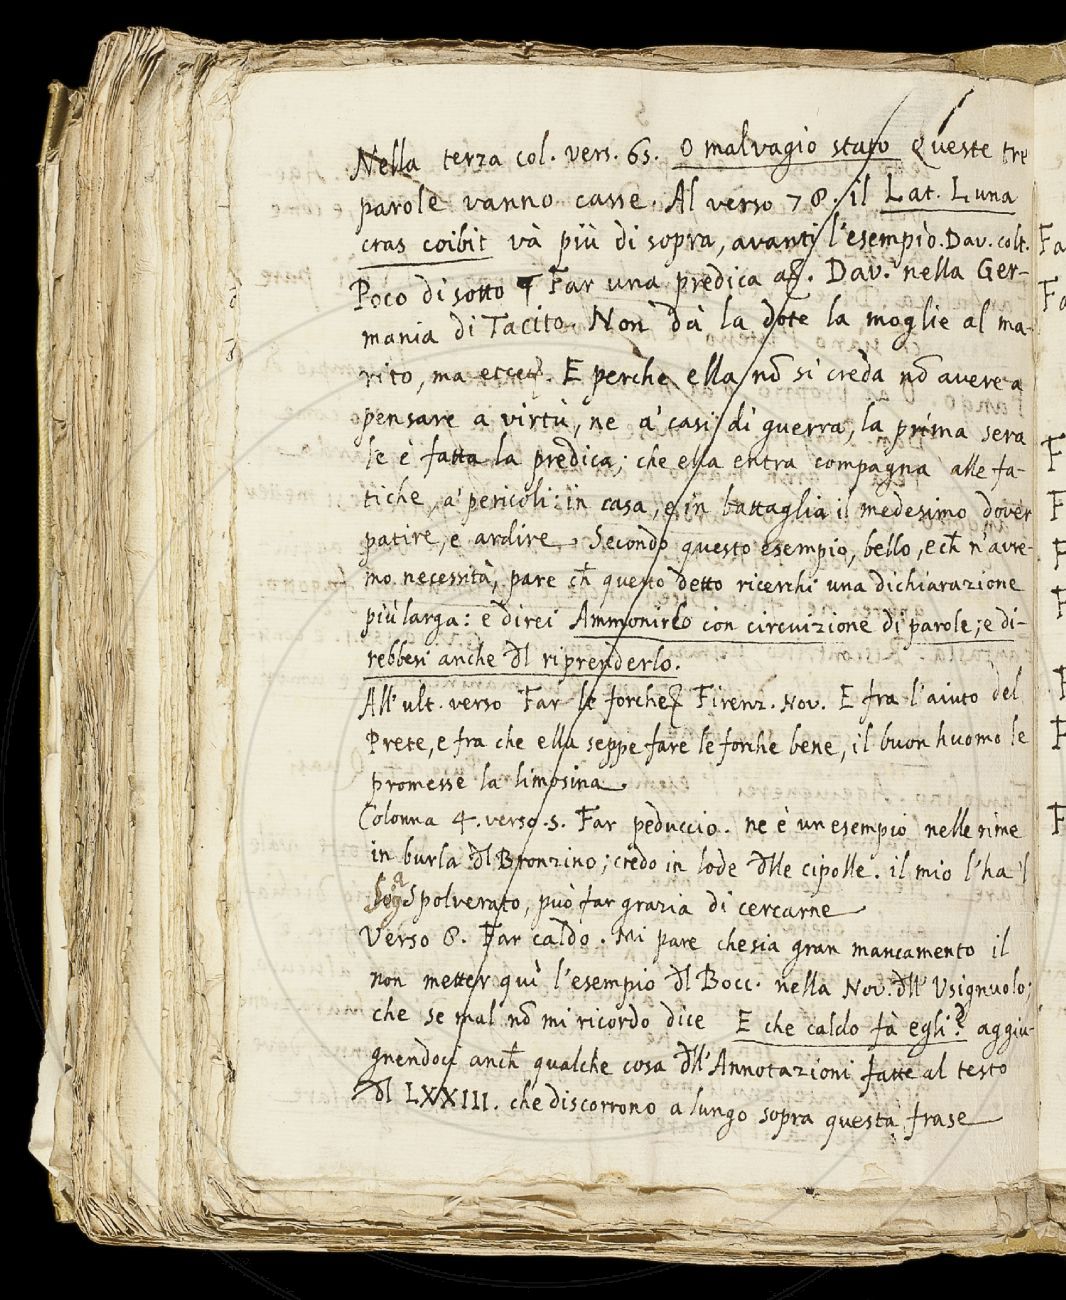 Nella terza col. vers. 65. O malvagio stato Queste tre
parole vanno casse. Al verso 78. il Lat. Luna
cras coibit và più di sopra, avanti l'esempio. Dav. colt.
Poco di sotto ¶ Far una predica a &. Dav. nella Ger-
mania di Tacito. Non dà la dote la moglie al ma-
rito, ma eccet. E perche ella nō si creda nō avere a
pensare a virtù, ne a' casi di guerra, la prima sera
le è fatta la predica; che ella entra compagna alle fa-
tiche, a' pericoli: in casa, e in battaglia il medesimo dover
patire, e ardire. Secondo questo esempio, bello, e ch̄ n'avre-
mo necessità, pare ch̄ questo detto ricerchi una dichiarazione
più larga: e direi Ammonirlo con circuizione di parole; e di-
rebbesi anche dl riprenderlo.
All'ult. verso Far le forche & Firenz. Nov. E fra l'aiuto del
Prete, e fra che ella seppe fare le forche bene, il buon huomo le
promesse la limosina.
Colonna 4. verso .5. Far peduccio. ne è un esempio nelle rime
in burla dl Bronzino; credo in lode dlle cipolle. il mio l'ha 'l
Sigr Spolverato, può far grazia di cercarne
Verso 8. Far caldo. Mi pare che sia gran mancamento il
non metter quì l'esempio dl Bocc. nella Nov. dll' Usignuolo;
che se mal nō mi ricordo dice E che caldo fà egli? aggiu-
gnendoci anch̄ qualche cosa dll'Annotazioni fatte al testo
dl LXXIII. che discorrono a lungo sopra questa frase
Fa
Fa
F
F
F
F
F
F
F